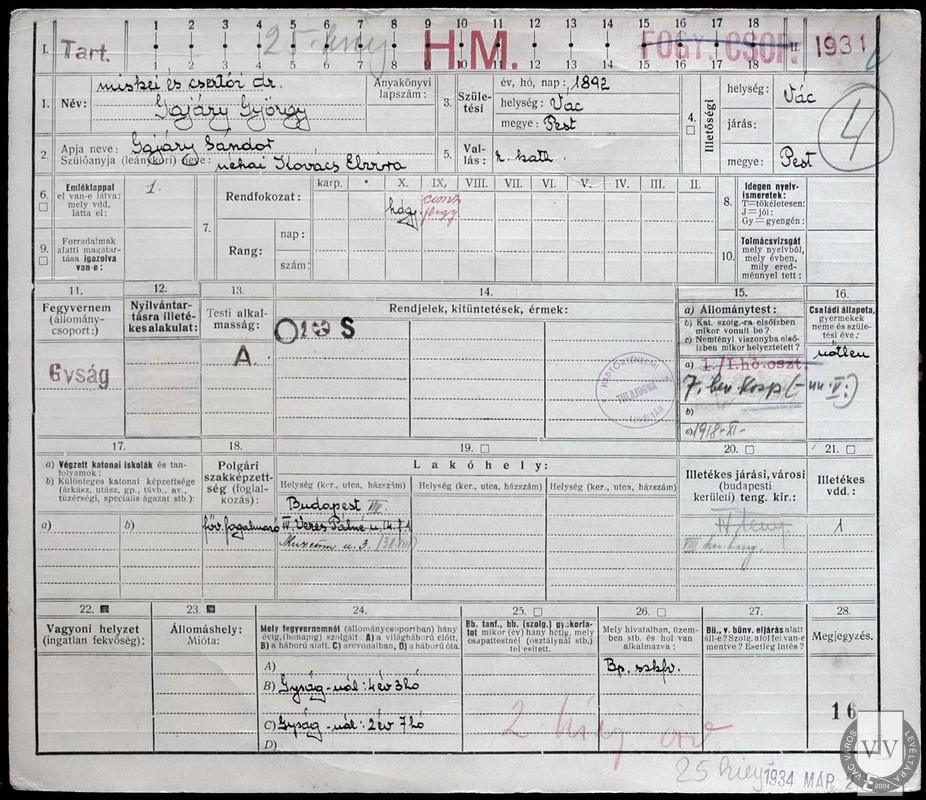 1 2 3 4 5 6 7 8 9 10 11 12 13 14 15 16 17 18
I. Tart. H.M. FOGY. CSOP. II. 1931
1 2 3 4 5 6 7 8 9 10 11 12 13 14 15 16 17 18
1. Név: miskei és csertői dr.
Gajáry György
Anyakönyvi lapszám:
3. Születési
év, hó, nap: 1892
helység: Vác
megye: Pest
4. Illetőségi
helység: Vác
járás:
megye: Pest
4
2. Apja neve: Gajáry Sándor
Szülőanyja (leánykori) neve: néhai Kovács Elvira
5. Vallás: r. kath.
6. Emléklappal
el van-e látva:
mely vdd.
látta el:
1.
7. Rendfokozat:
karp. • X. IX. VIII. VII. VI. V. IV. III. II.
Rang:
nap:
szám:
8. Idegen nyelv-
ismeretek:
T=tökéletesen:
J=jól:
Gy=gyengén:
9. Forradalmak
alatti magatar-
tása igazolva
van-e:
10. Tolmácsvizsgát
mely nyelvből,
mely évben,
mily ered-
ménnyel tett:
11.
Fegyvernem
(állomány-
csoport:)
Gyság
12.
Nyilvántar-
tásra illeté-
kes alakulat:
13.
Testi alkal-
masság:
A.
14.
Rendjelek, kitüntetések, érmek:
S
HADTÖRTÉNELMI
TULAJDONA
LEVÉLTÁR
15.
a) Állománytest:
b) Kat. szolg.-ra elsőízben
mikor vonult be?
c) Nemtényl. viszonyba első-
ízben mikor helyeztetett?
a) 1./I.hó.oszt.
b)
c) 1918-XI-
16.
Családi állapota,
gyermekek
neme és szüle-
tési éve:
nőtlen
17.
a) Végzett katonai iskolák és tan-
folyamok:
b) Különleges katonai képzettsége
(árkász, utász, gp., távb., av.,
tüzérségi, speciális ágazat stb.):
a) b)
18.
Polgári
szakképzett-
ség (foglal-
kozás):
főv. fogalmazó
19.
Lakóhely:
Helység (ker., utca, házszám) Helység (ker., utca, házszám) Helység (ker., utca, házszám)
Budapest VIII.
IV. Veres Pálné u.
Muzeum u. 3.
20.
Illetékes járási, városi
(budapesti
kerületi) teng. kir.:
21.
Illetékes
vdd.:
1
22.
Vagyoni helyzet
(ingatlan fekvőség):
23.
Állomáshely:
Mióta:
24.
Mely fegyvernemnél (állománycsoportban) hány
évig, (hónapig) szolgált. A) a világháború előtt,
B) a háború alatt. C) arcvonalban, D) a háború óta.
A)
B) Gyság-nál: 4 év 3 hó
C) Gyság-nál: 2 év 7 hó
D)
25.
Bb. tanf., hb. (szolg.) gyakorla-
tot mikor (év) hány hétig, mely
csapattestnél (osztálynál stb.)
teljesített.
26.
Mely hivatalban, üzem-
ben stb. és hol van
alkalmazva:
Bp. szkfv.
27.
Bü., v. bünv. eljárás alatt
áll-e? Szolg. alól fel van-e
mentve? Esetleg intés?
28.
Megjegyzés.
16
1934 MÁR. 2
VÁC VÁROS LEVÉLTÁRA
2004